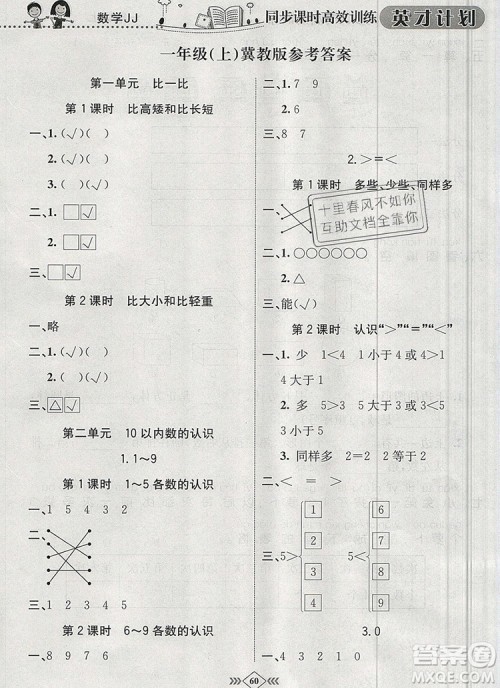 数学JJ
同步课时高效训练 英才计划
一年级(上)冀教版参考答案
第一单元 比一比
第1课时 比高矮和比长短
一、1. (√)( )
2. (√)( )
二、1. □ √
2. □ √
三、□ √
第2课时 比大小和比轻重
一、略
二、1. ( )(√)
2. ( )(√)
三、△ √
第二单元 10以内数的认识
1. 1~9
第1课时 1~5各数的认识
一、1 5 4 3 2
二、
三、1 2 3 4 5
第2课时 6~9各数的认识
一、8 9 7 6
二、1. 7 9
2. 6
三、8 7
2. > = <
第1课时 多些、少些、同样多
一、
二、1. ○○○○○○
2. △
三、能(√)
第2课时 认识“>”“=”“<”
一、1. 少 1<4 1小于4 或4>1
4大于1
2. 多 5>3 5大于3 或3<5
3小于5
3. 同样多 2=2 2等于2
二、
三、5> 1 2 3 4
5< 6 7 8 9
3. 0
一、4 3 2 1 0
60
十里春风不如你
互助文档全靠你
答案圈
MXQE.COM